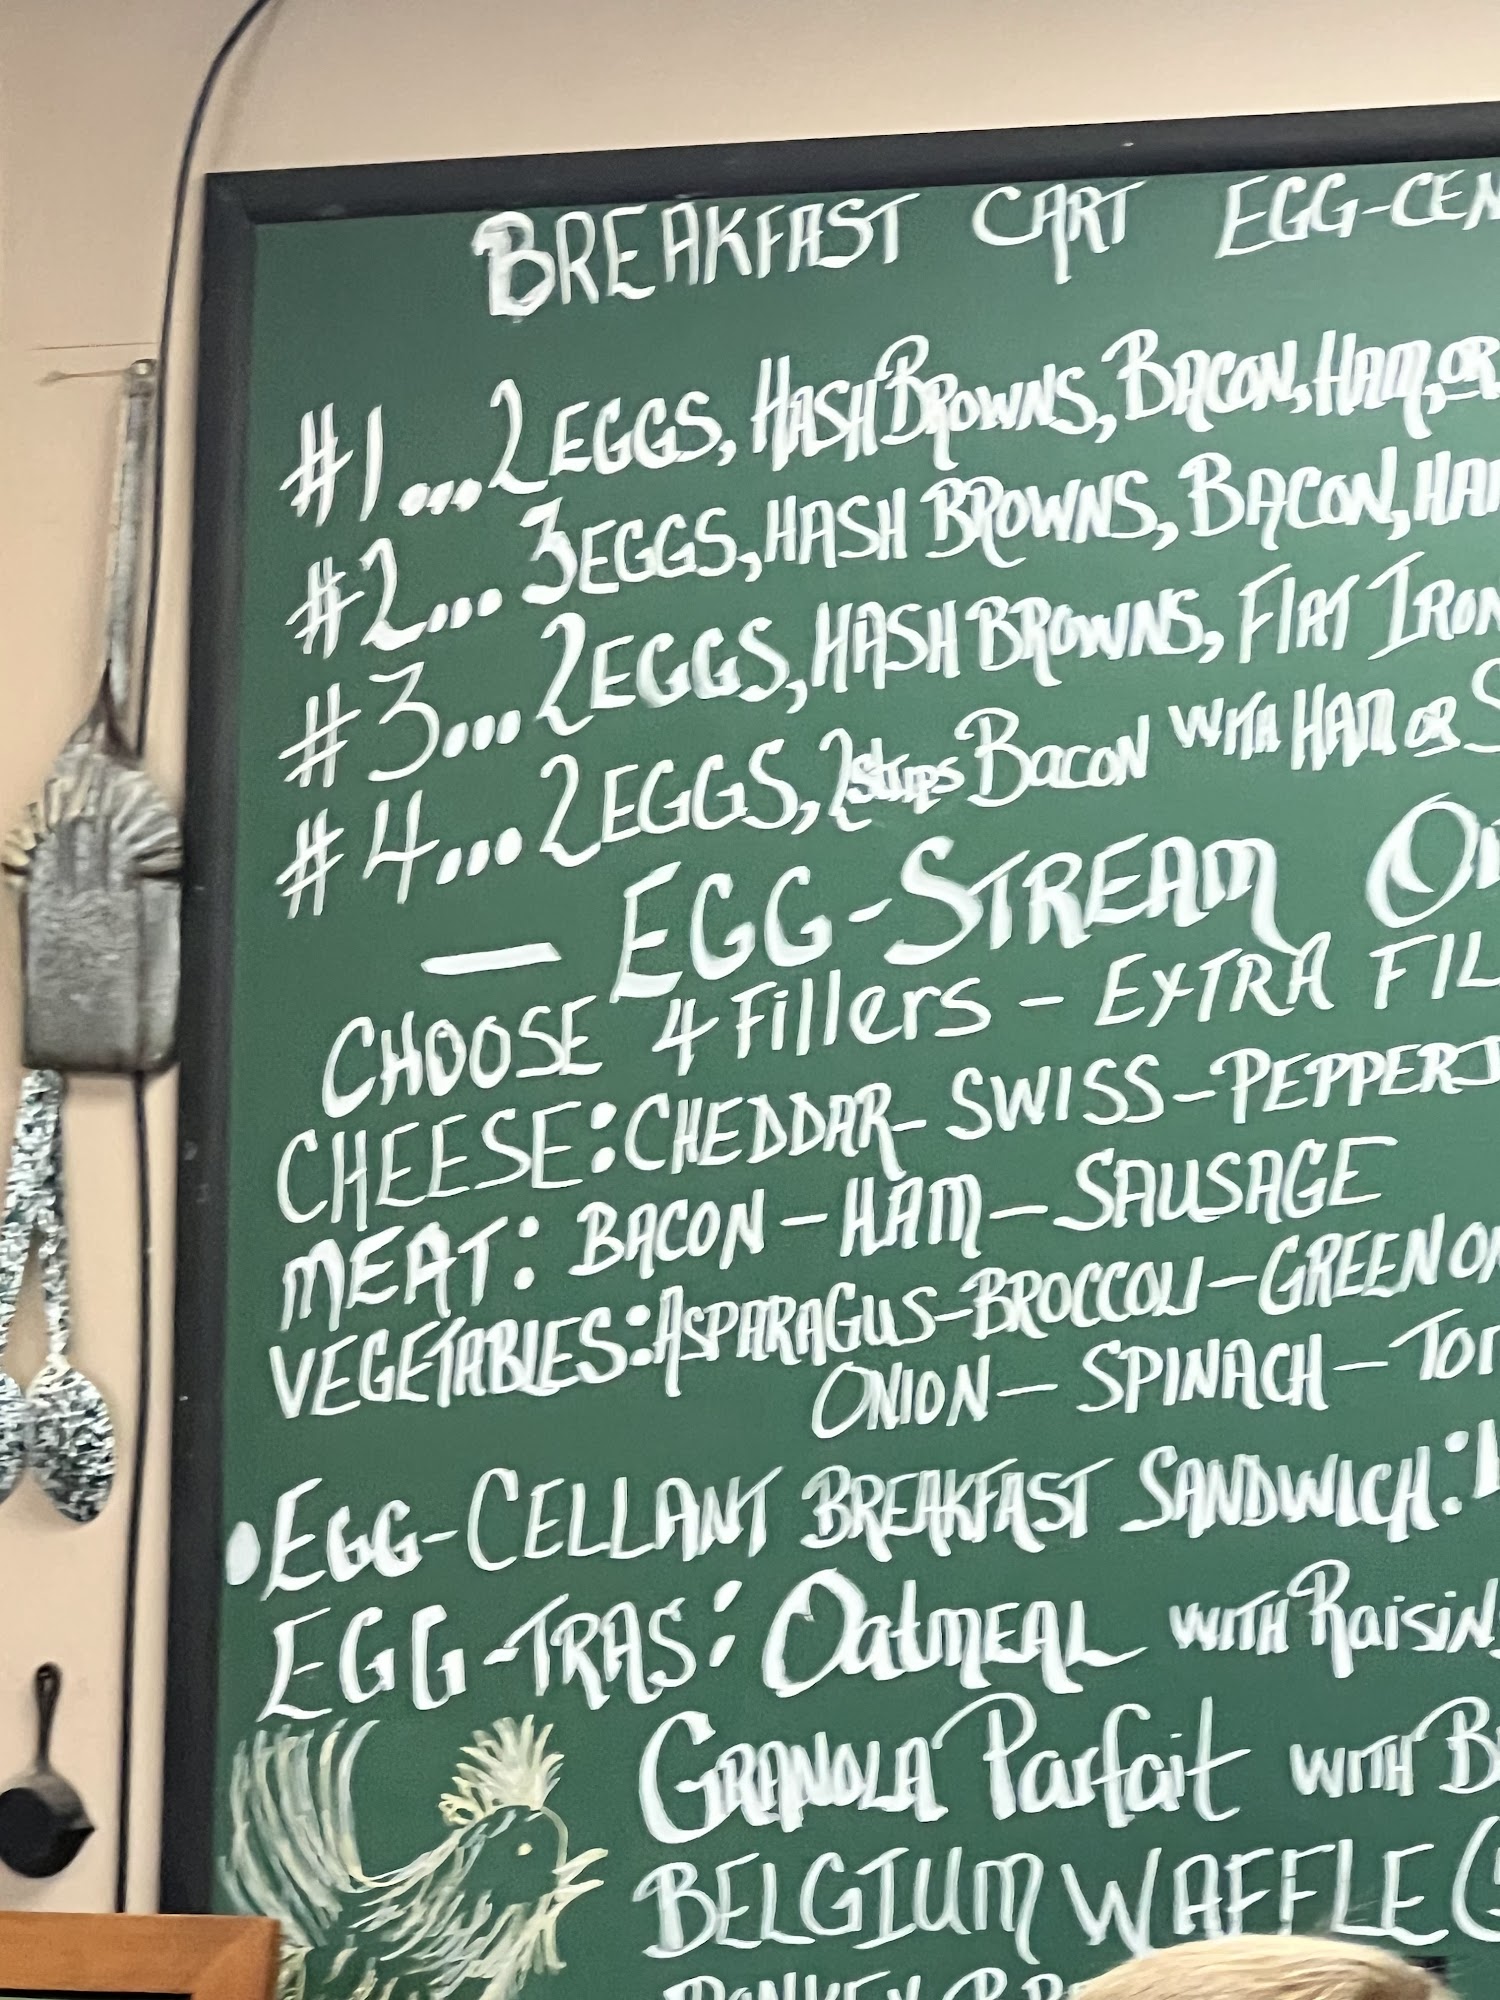 BREAKFAST CART EGG-CEN
#1...2 EGGS, HASH BROWNS, BACON, HAM, OR
#2...3 EGGS, HASH BROWNS, BACON, HAM
#3...2 EGGS, HASH BROWNS, FLAT IRON
#4...2 EGGS, 2 Strips BACON WITH HAM OR S
— EGG-STREAM OM
CHOOSE 4 Fillers - EXTRA FIL
CHEESE: CHEDDAR - SWISS - PEPPERJ
MEAT: BACON - HAM - SAUSAGE
VEGETABLES: ASPARAGUS - BROCCOLI - GREEN ON
ONION - SPINACH - TOM
•EGG-CELLANT BREAKFAST SANDWICH:
EGG-TRAS: OatMEAL WITH Raisins
GRANOLA Parfait WITH B
BELGIUM WAFFLE (